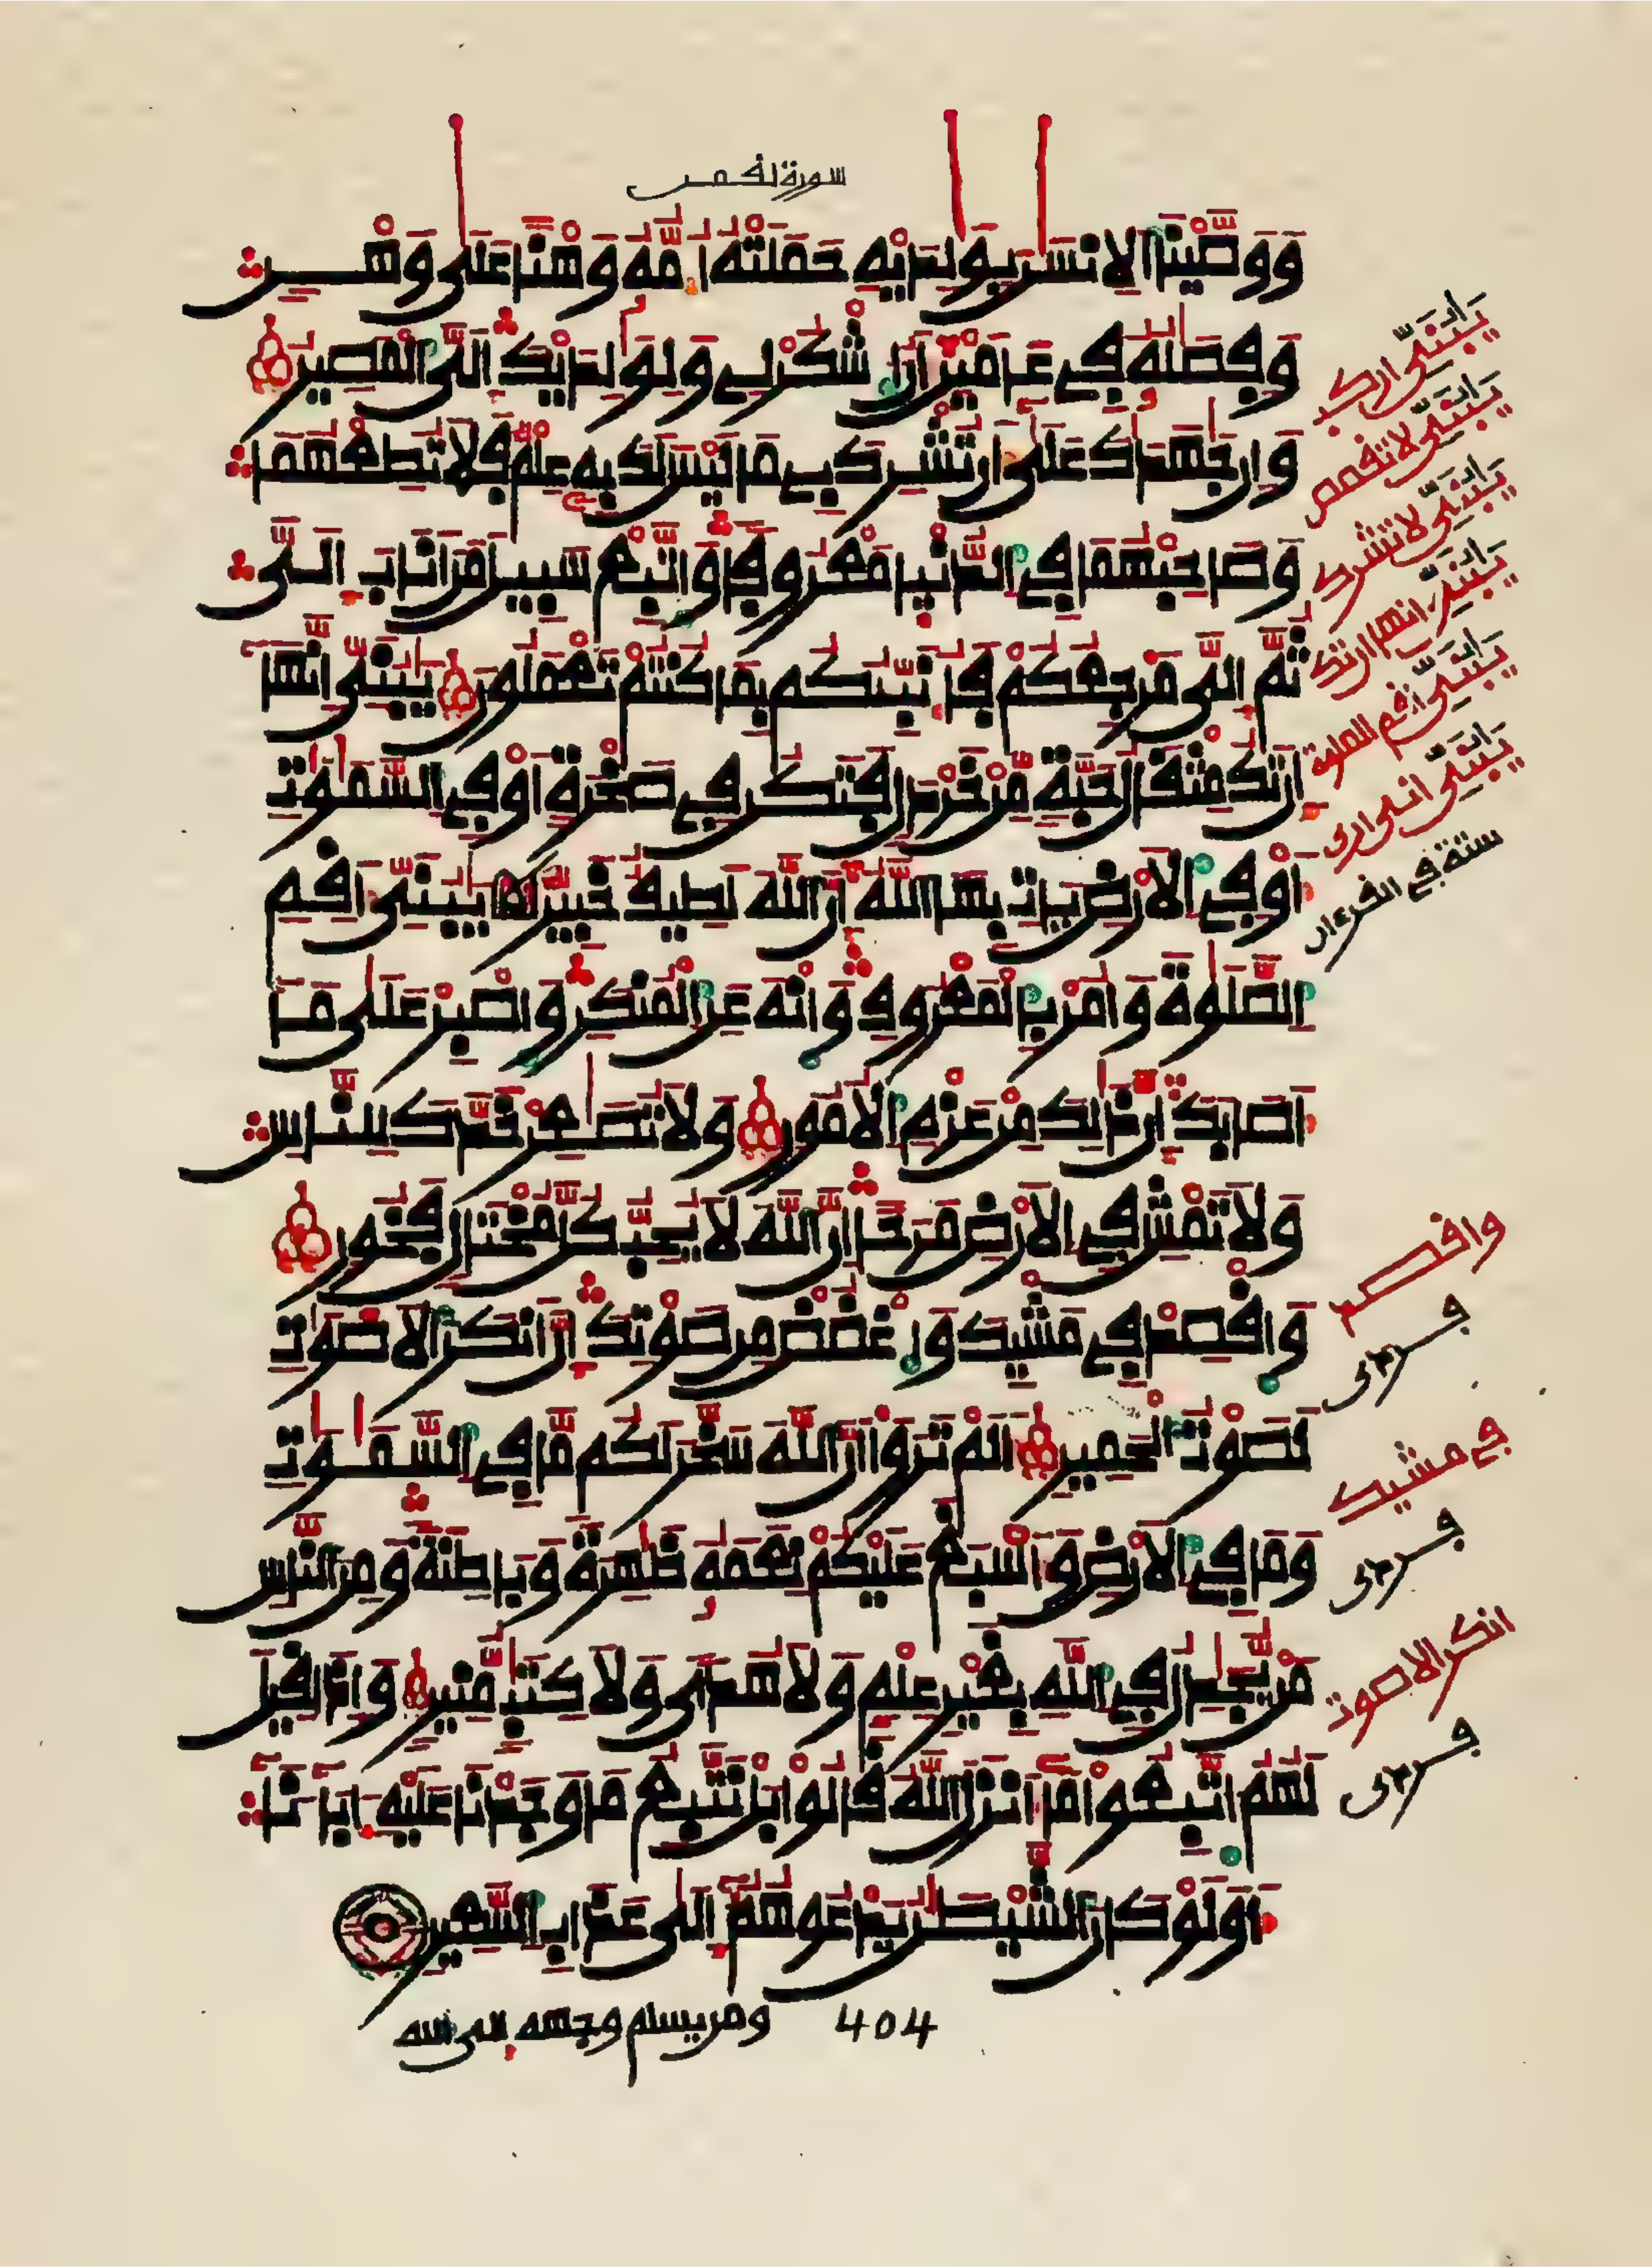 سورة لقمن
وَوَصَّيْنَا الِانسَٰنَ بِوَٰلِدَيْهِ حَمَلَتْهُ أُمُّهُۥ وَهْناً عَلَىٰ وَهْنٍ
وَفِصَٰلُهُۥ فِى عَامَيْنِ أَنُ اشْكُرْ لِى وَلِوَٰلِدَيْكَ إِلَىَّ الْمَصِيرُ
وَإِن جَٰهَدَاكَ عَلَىٰ أَن تُشْرِكَ بِى مَا لَيْسَ لَكَ بِهِۦ عِلْمٌ فَلَا تُطِعْهُمَا
وَصَاحِبْهُمَا فِى الدُّنْيَا مَعْرُوفاً وَاتَّبِعْ سَبِيلَ مَنَ انَابَ إِلَىَّ
ثُمَّ إِلَىَّ مَرْجِعُكُمْ فَأُنَبِّئُكُم بِمَا كُنتُمْ تَعْمَلُونَ يَٰبُنَىِّ إِنَّهَا
إِن تَكُ مِثْقَالُ حَبَّةٍ مِّنْ خَرْدَلٍ فَتَكُن فِى صَخْرَةٍ أَوْ فِى السَّمَٰوَٰتِ
أَوْ فِى الَارْضِ يَاتِ بِهَا اللَّهُ إِنَّ اللَّهَ لَطِيفٌ خَبِيرٌ يَٰبُنَىِّ أَقِمِ
الصَّلَوٰةَ وَامُرْ بِالْمَعْرُوفِ وَانْهَ عَنِ الْمُنكَرِ وَاصْبِرْ عَلَىٰ مَا
أَصَابَكَ إِنَّ ذَٰلِكَ مِنْ عَزْمِ الُامُورِ وَلَا تُصَٰعِرْ خَدَّكَ لِلنَّاسِ
وَلَا تَمْشِ فِى الَارْضِ مَرَحاً إِنَّ اللَّهَ لَا يُحِبُّ كُلَّ مُخْتَالٍ فَخُورٍ
وَاقْصِدْ فِى مَشْيِكَ وَاغْضُضْ مِن صَوْتِكَ إِنَّ أَنكَرَ الَاصْوَٰتِ
لَصَوْتُ الْحَمِيرِ أَلَمْ تَرَوَاْ انَّ اللَّهَ سَخَّرَ لَكُم مَّا فِى السَّمَٰوَٰتِ
وَمَا فِى الَارْضِ وَأَسْبَغَ عَلَيْكُمْ نِعَمَهُۥ ظَٰهِرَةً وَبَاطِنَةً وَمِنَ النَّاسِ
مَنْ يُّجَٰدِلُ فِى اللَّهِ بِغَيْرِ عِلْمٍ وَلَا هُدىً وَلَا كِتَٰبٍ مُّنِيرٍ وَإِذَا قِيلَ
لَهُمُ اتَّبِعُواْ مَا أَنزَلَ اللَّهُ قَالُواْ بَلْ نَتَّبِعُ مَا وَجَدْنَا عَلَيْهِ ءَابَاءَنَا
أَوَلَوْ كَانَ الشَّيْطَٰنُ يَدْعُوهُمُ إِلَىٰ عَذَابِ السَّعِيرِ
404 ومن يسلم وجهه إلى الله
يَٰبُنَىِّ اركب
يَٰبُنَىِّ لا تقصص
يَٰبُنَىِّ لا تشرك
يَٰبُنَىِّ إنها إن تك
يَٰبُنَىِّ أقم الصلوة
يَٰبُنَىِّ إنى أرى
ستة فى القرءان
واقصد
فى مشيك
انكر الاصوت